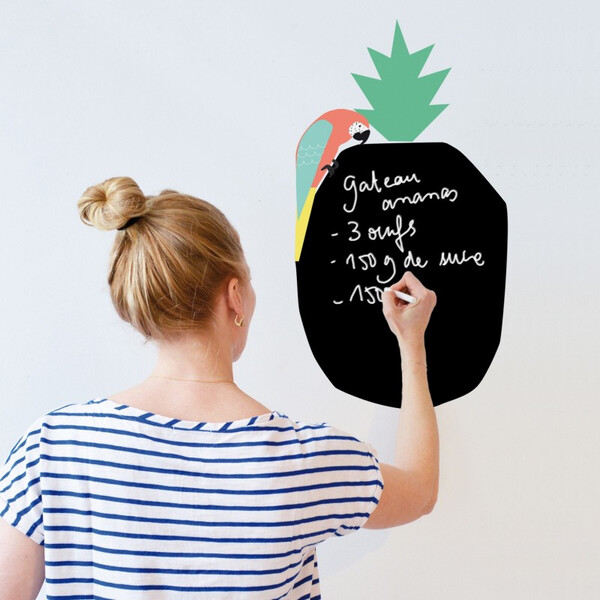 gateau
ananas
- 3 œufs
- 150 g de sucre
- 150